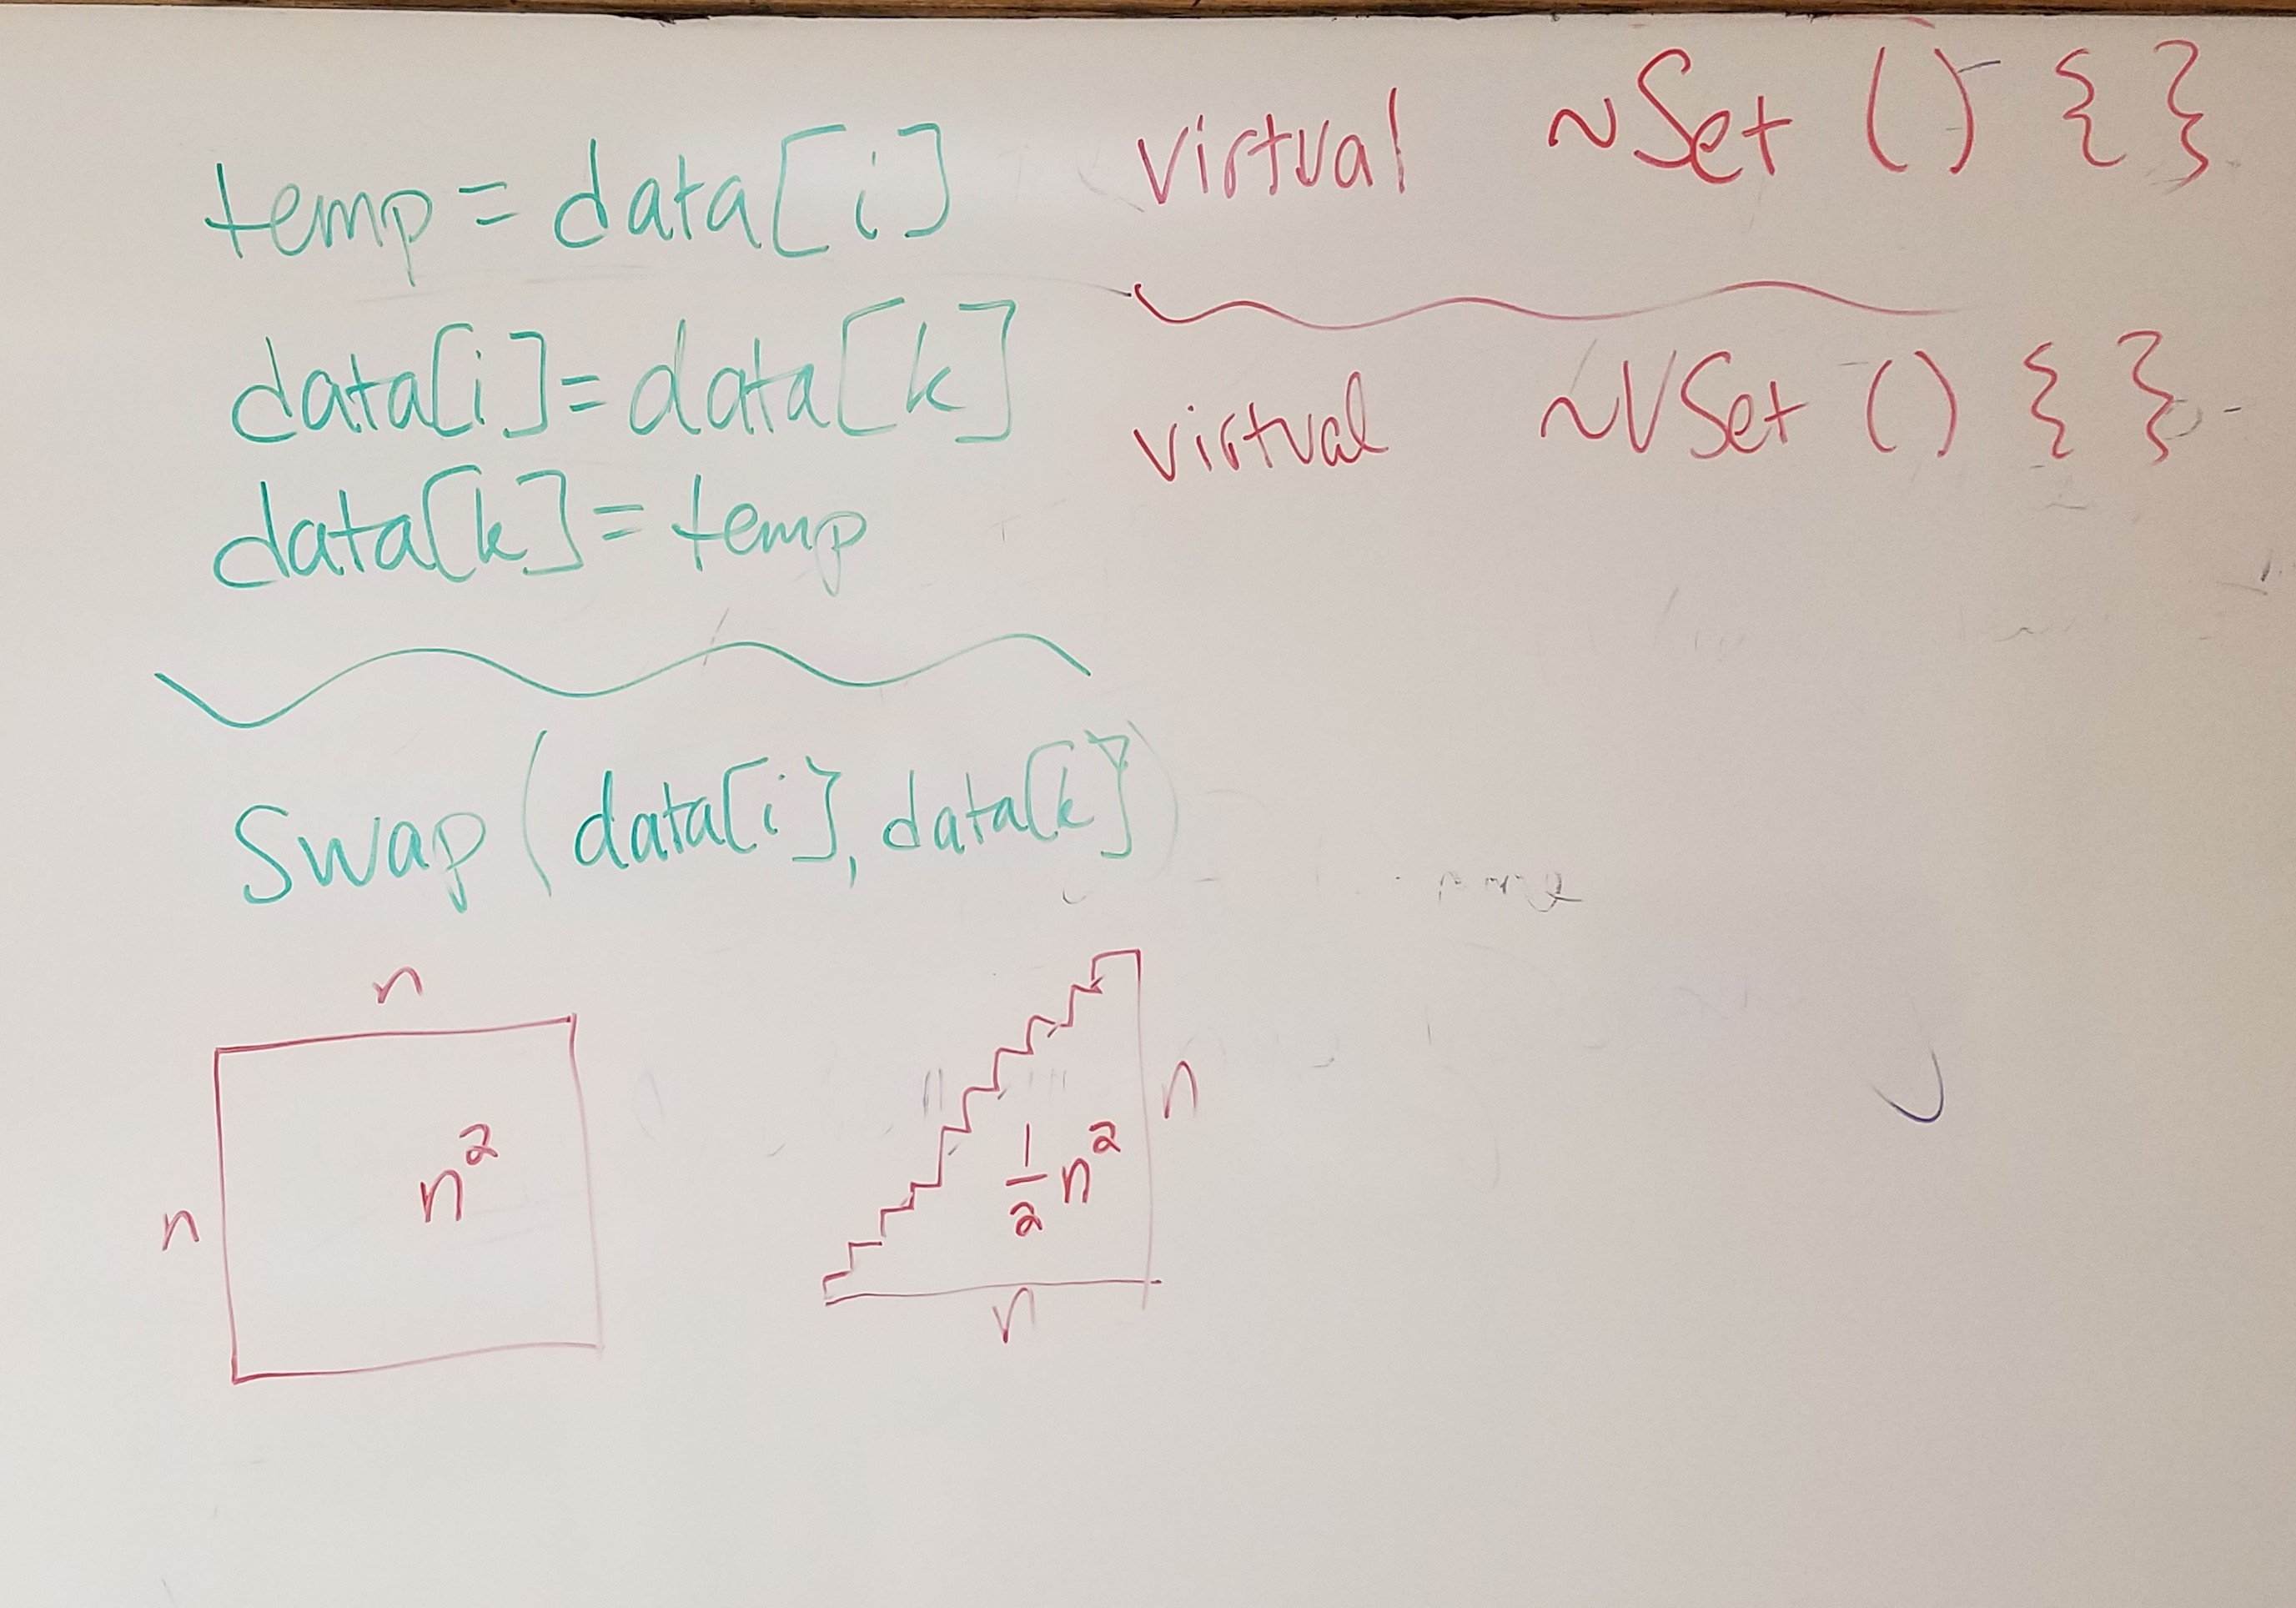 temp = data[i]
data[i] = data[k]
data[k] = temp
swap(data[i], data[k])
virtual ~Set () { }
virtual ~VSet () { }
n
n
n²
n
½ n²
n